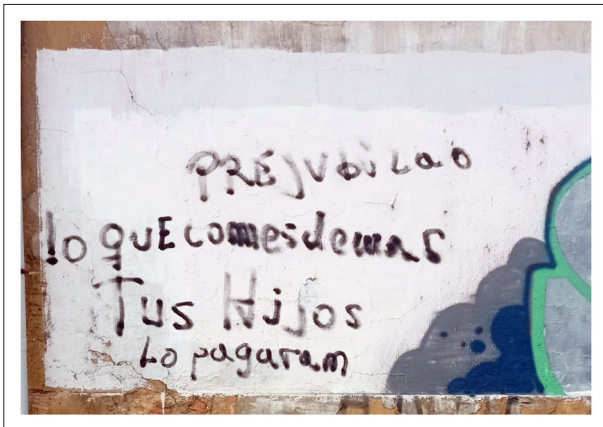 PREJUBiLaO
lo quE comes demas
Tus Hijos
Lo pagaram